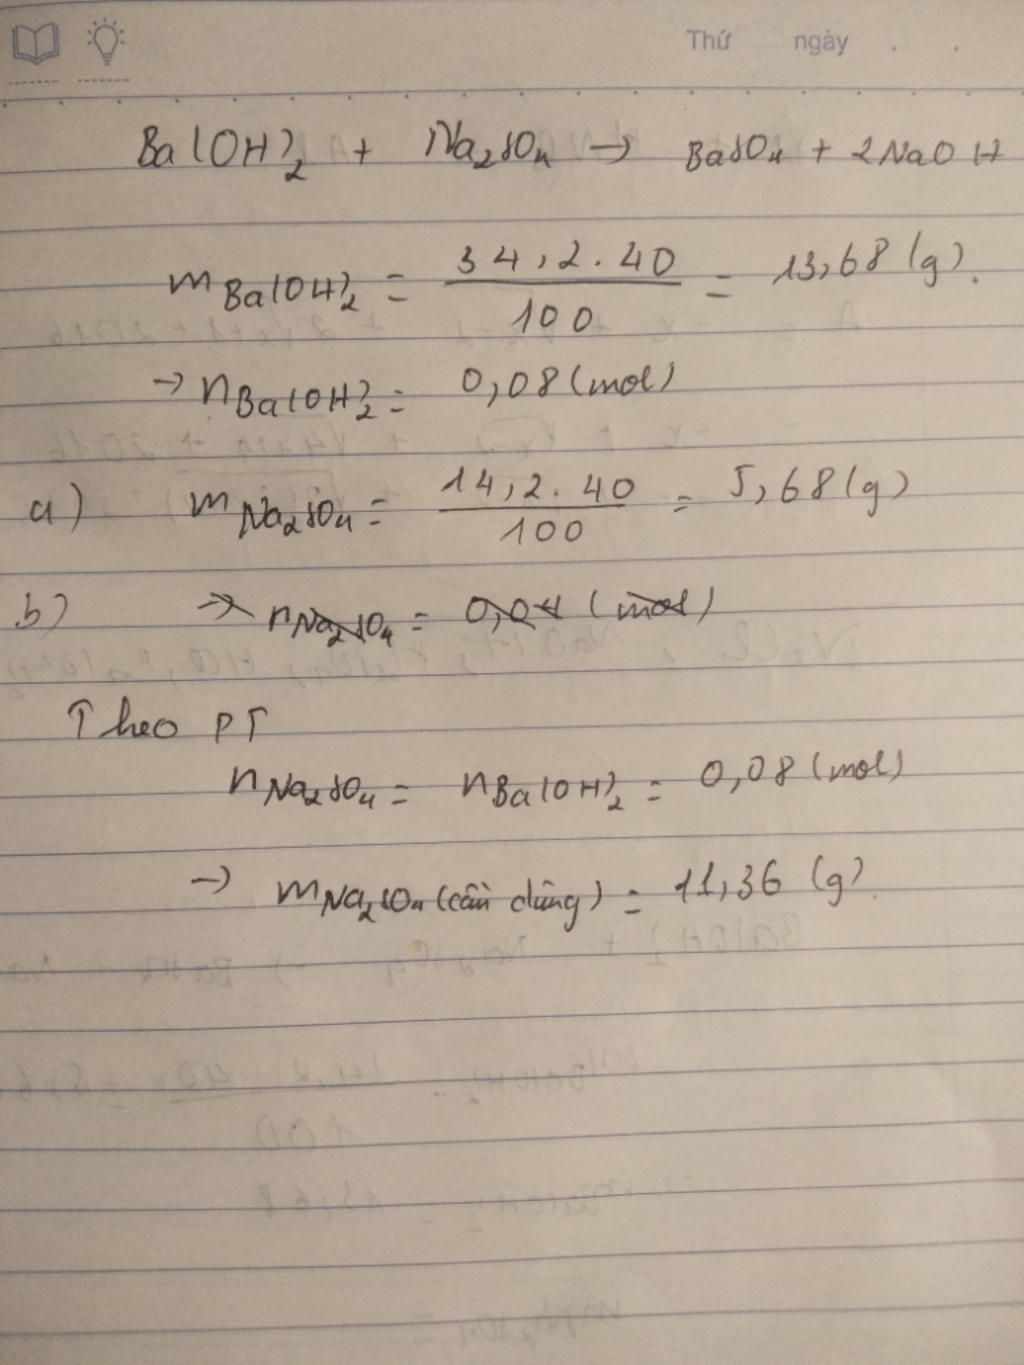 Thứ ngày . .
Ba(OH)₂ + Na₂SO₄ → BaSO₄ + 2NaOH
m Ba(OH)₂ = 34,2.40 / 100 = 13,68 (g).
→ n Ba(OH)₂ = 0,08 (mol)
a) m Na₂SO₄ = 14,2.40 / 100 = 5,68 (g)
b) → n Na₂SO₄ = 0,04 (mol)
Theo PT
n Na₂SO₄ = n Ba(OH)₂ = 0,08 (mol)
→ m Na₂SO₄ (cần dùng) = 11,36 (g).